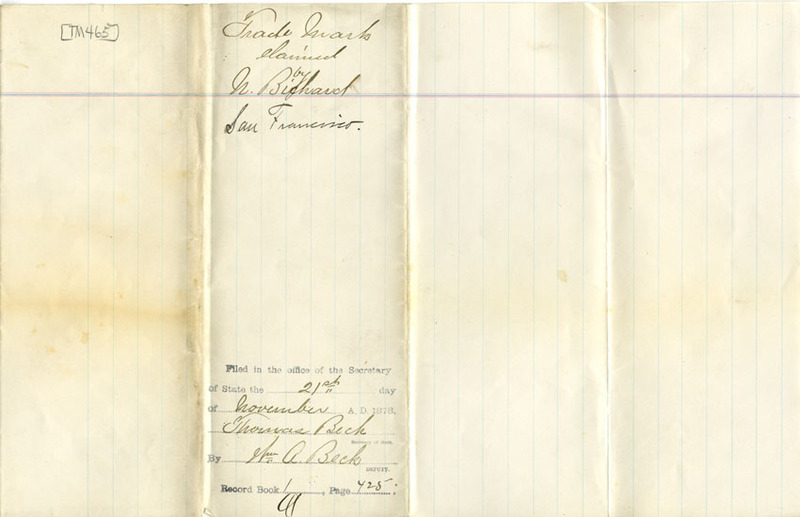 [TM465]
Trade Mark
claimed
by
N. Bichard
San Francisco.
Filed in the office of the Secretary
of State the 21st day
of November A. D. 1878,
Thomas Beck
Secretary of State.
By Wm A. Beck
DEPUTY.
Record Book 1, Page 425.